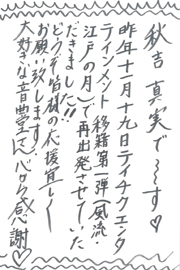 秋吉 真実で〜す♡
昨年十一月十九日テイチクエンタ
テインメント移籍第一弾「風流・
江戸の月」で再出発させていた
だきました!!
どうぞ皆様の応援宜しく
お願い致します♪
大好きな音霊に心から感謝♡